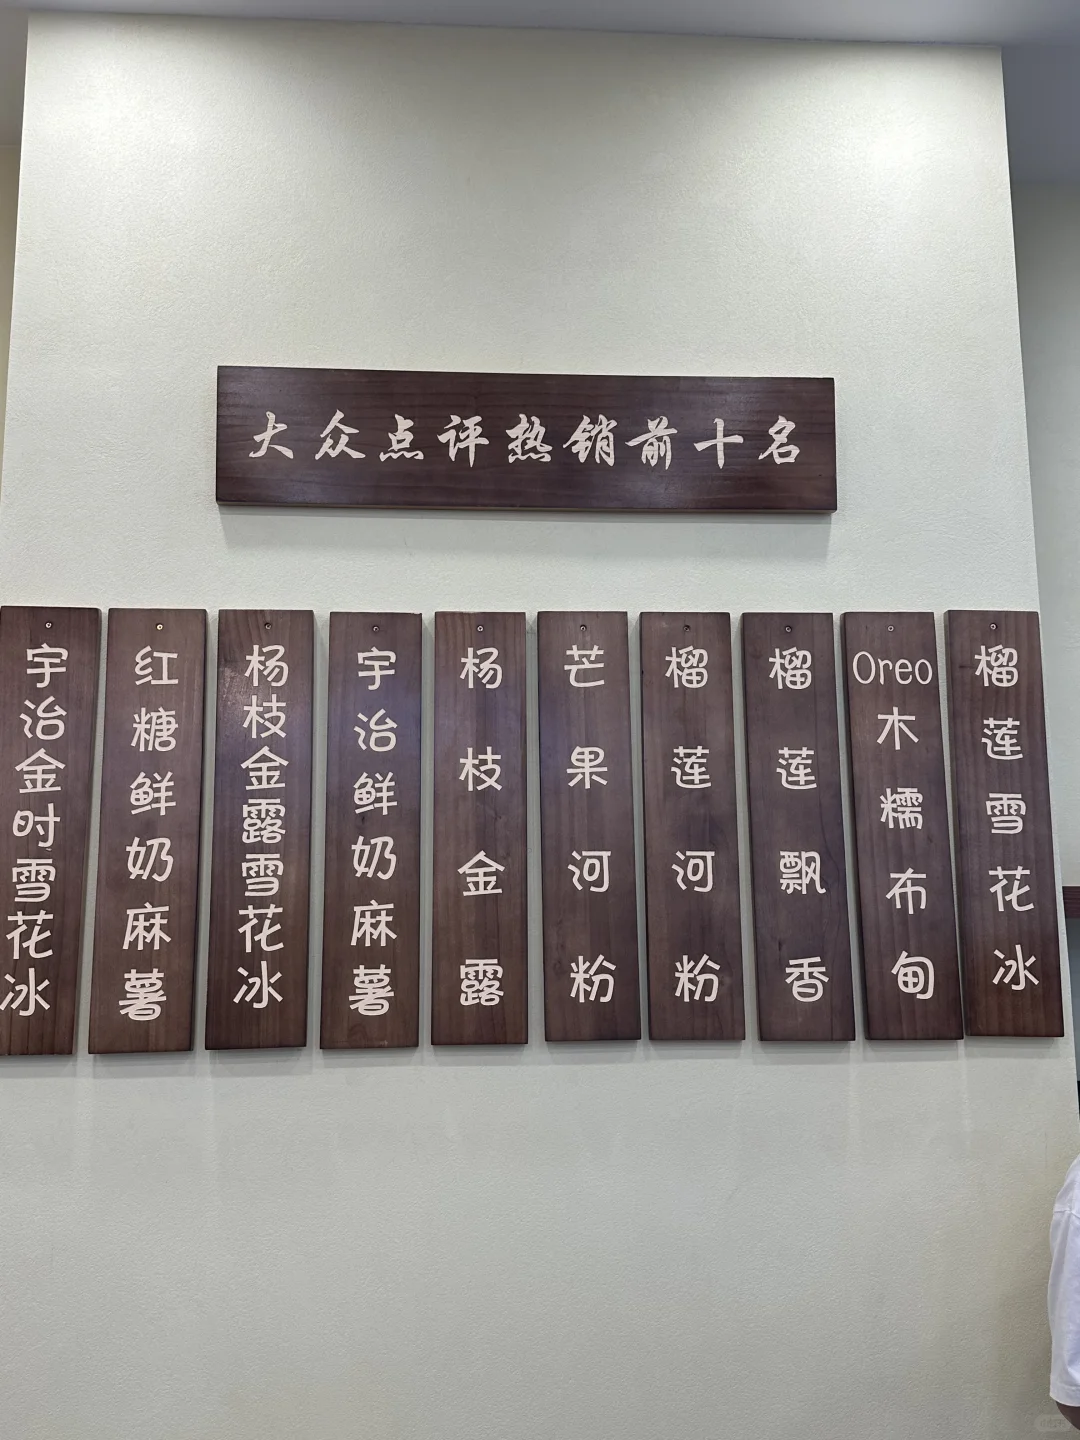 大众点评热销前十名
宇治金时雪花冰
红糖鲜奶麻薯
杨枝金露雪花冰
宇治鲜奶麻薯
杨枝金露
芒果河粉
榴莲河粉
榴莲飘香
Oreo木糯布甸
榴莲雪花冰